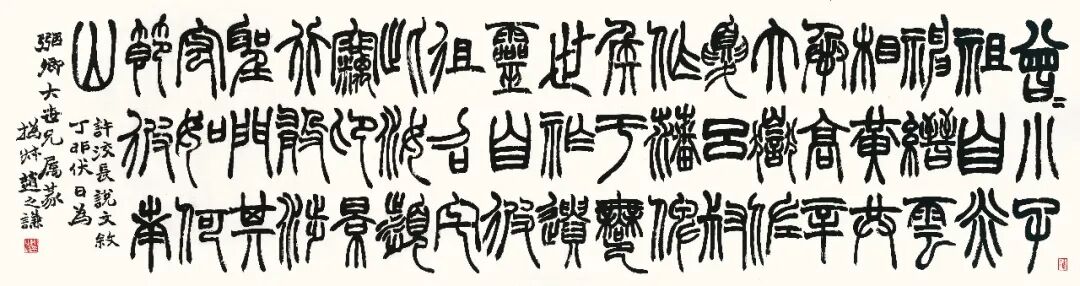 曾〻小子
祖自炎
神縉雲
相黃共
承高辛
大嶽佐
夏呂叔
作藩俾
侯于鄦
世祚遺
靈自彼
徂召宅
此汝瀕
竊卬景
行敢涉
聖門其
宏如何
節彼南
山
許洨長說文敘
丁卯伏日為
卿大世兄屬篆
撝叔趙之謙